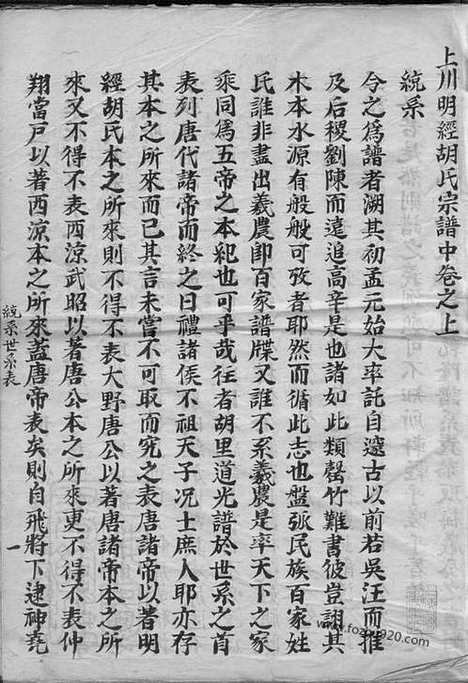 上川明經胡氏宗譜中卷之上
統系
今之爲譜者溯其初孟元始大率託自邃古以前若吳汪而推
及后稷劉陳而遠追高辛是也諸如此類罄竹難書彼豈謂其
木本水源有般般可攷者耶然而循此志也盤弧民族百家姓
民誰非盡出義農卽百家譜牒又誰不系義農是率天下之家
乘同爲五帝之本紀也可乎哉往者胡里道光譜於世系之首
表列唐代諸帝而終之曰禮諸侯不祖天子况士庶人耶亦存
其本之所來而已其言未嘗不可取而究之表唐諸帝以著明
經胡氏本之所來則不得不表大野唐公以著唐諸帝本之所
來又不得不表西涼武昭以著唐公本之所來更不得不表仲
翔當戶以著西涼本之所來蓋唐帝表矣則自飛將下逮神堯
統系世系表
一
www.foz920.com